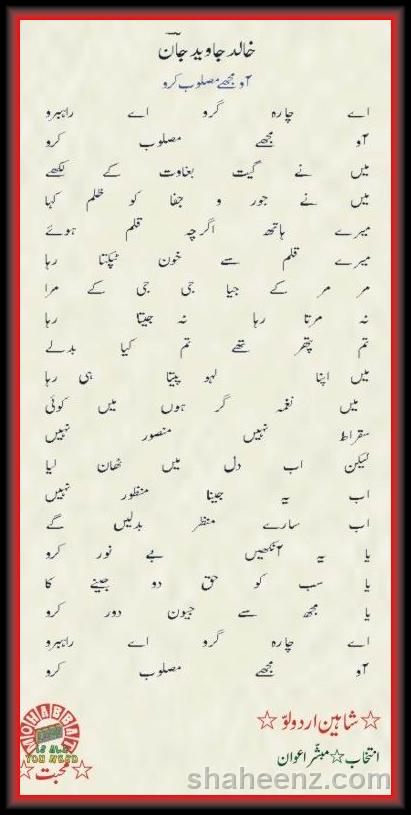 خالد جاوید جان
آو مجھے مصلوب کرو
اے چارہ گرو اے راہبرو
آو مجھے مصلوب کرو
میں نے گیت بغاوت کے لکھے
میں نے جور و جفا کو ظلم کہا
میرے ہاتھ اگرچہ قلم ہوئے
میرے قلم سے خون ٹپکتا رہا
مر مر کے جیا جی جی کے مرا
نہ مرتا رہا نہ جیتا رہا
تم پتھر تھے تم کیا بدلے
میں اپنا لہو پیتا ہی رہا
میں نغمہ گر ہوں میں کوئی
سقراط نہیں منصور نہیں
لیکن اب دل میں ٹھان لیا
اب یہ جینا منظور نہیں
اب سارے منظر بدلیں گے
یا یہ آنکھیں بے نور کرو
یا سب کو حق دو جینے کا
یا مجھ سے جیون دور کرو
اے چارہ گرو اے راہبرو
آو مجھے مصلوب کرو
☆ شاہین اردولوّ ☆
انتخاب ☆ مبشّر اعوان
MOHABBAT
IS ALL
YOU NEED
☆ محبت ☆
shaheenz.com